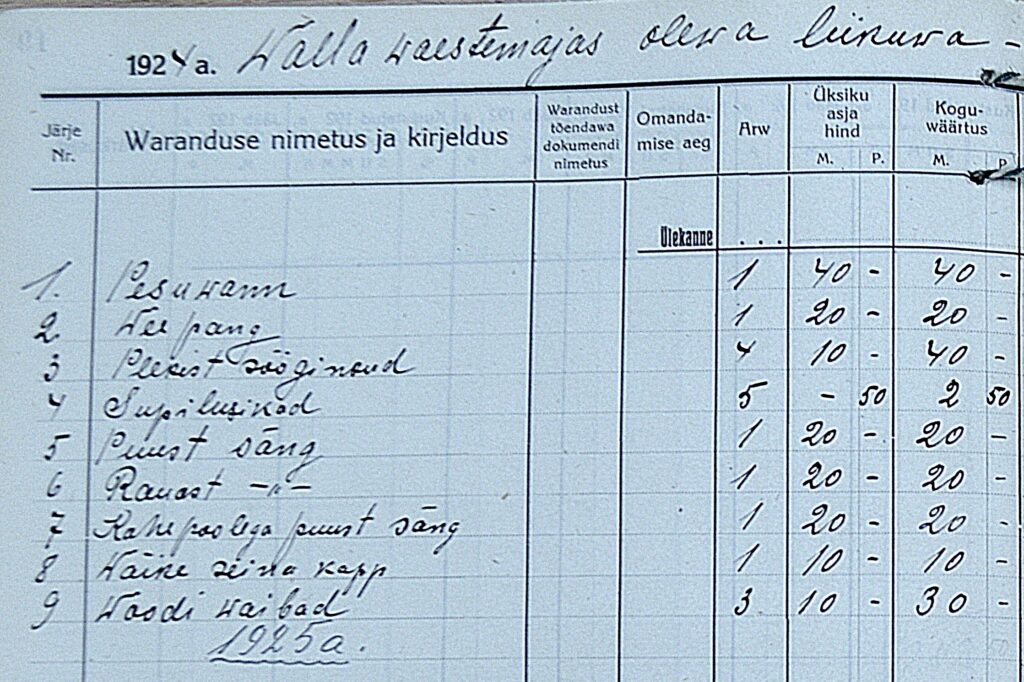 1924 a. Walla waestemajas olewa liikuwa-
Järje Nr. Waranduse nimetus ja kirjeldus Warandust tõendawa dokumendi nimetus Omandamise aeg Arw Üksiku asja hind M. P. Kogu-wäärtus M. P.
Ülekanne . . .
1. Pesuwann 1 40 - 40 -
2. Wee pang 1 20 - 20 -
3 Plekist sööginoud 4 10 - 40 -
4 Supilusikad 5 - 50 2 50
5 Puust säng 1 20 - 20 -
6 Rauast -"- 1 20 - 20 -
7 Kahepoolega puust säng 1 20 - 20 -
8 Wäike seina kapp 1 10 - 10 -
9 Woodi waibad 3 10 - 30 -
1925 a.